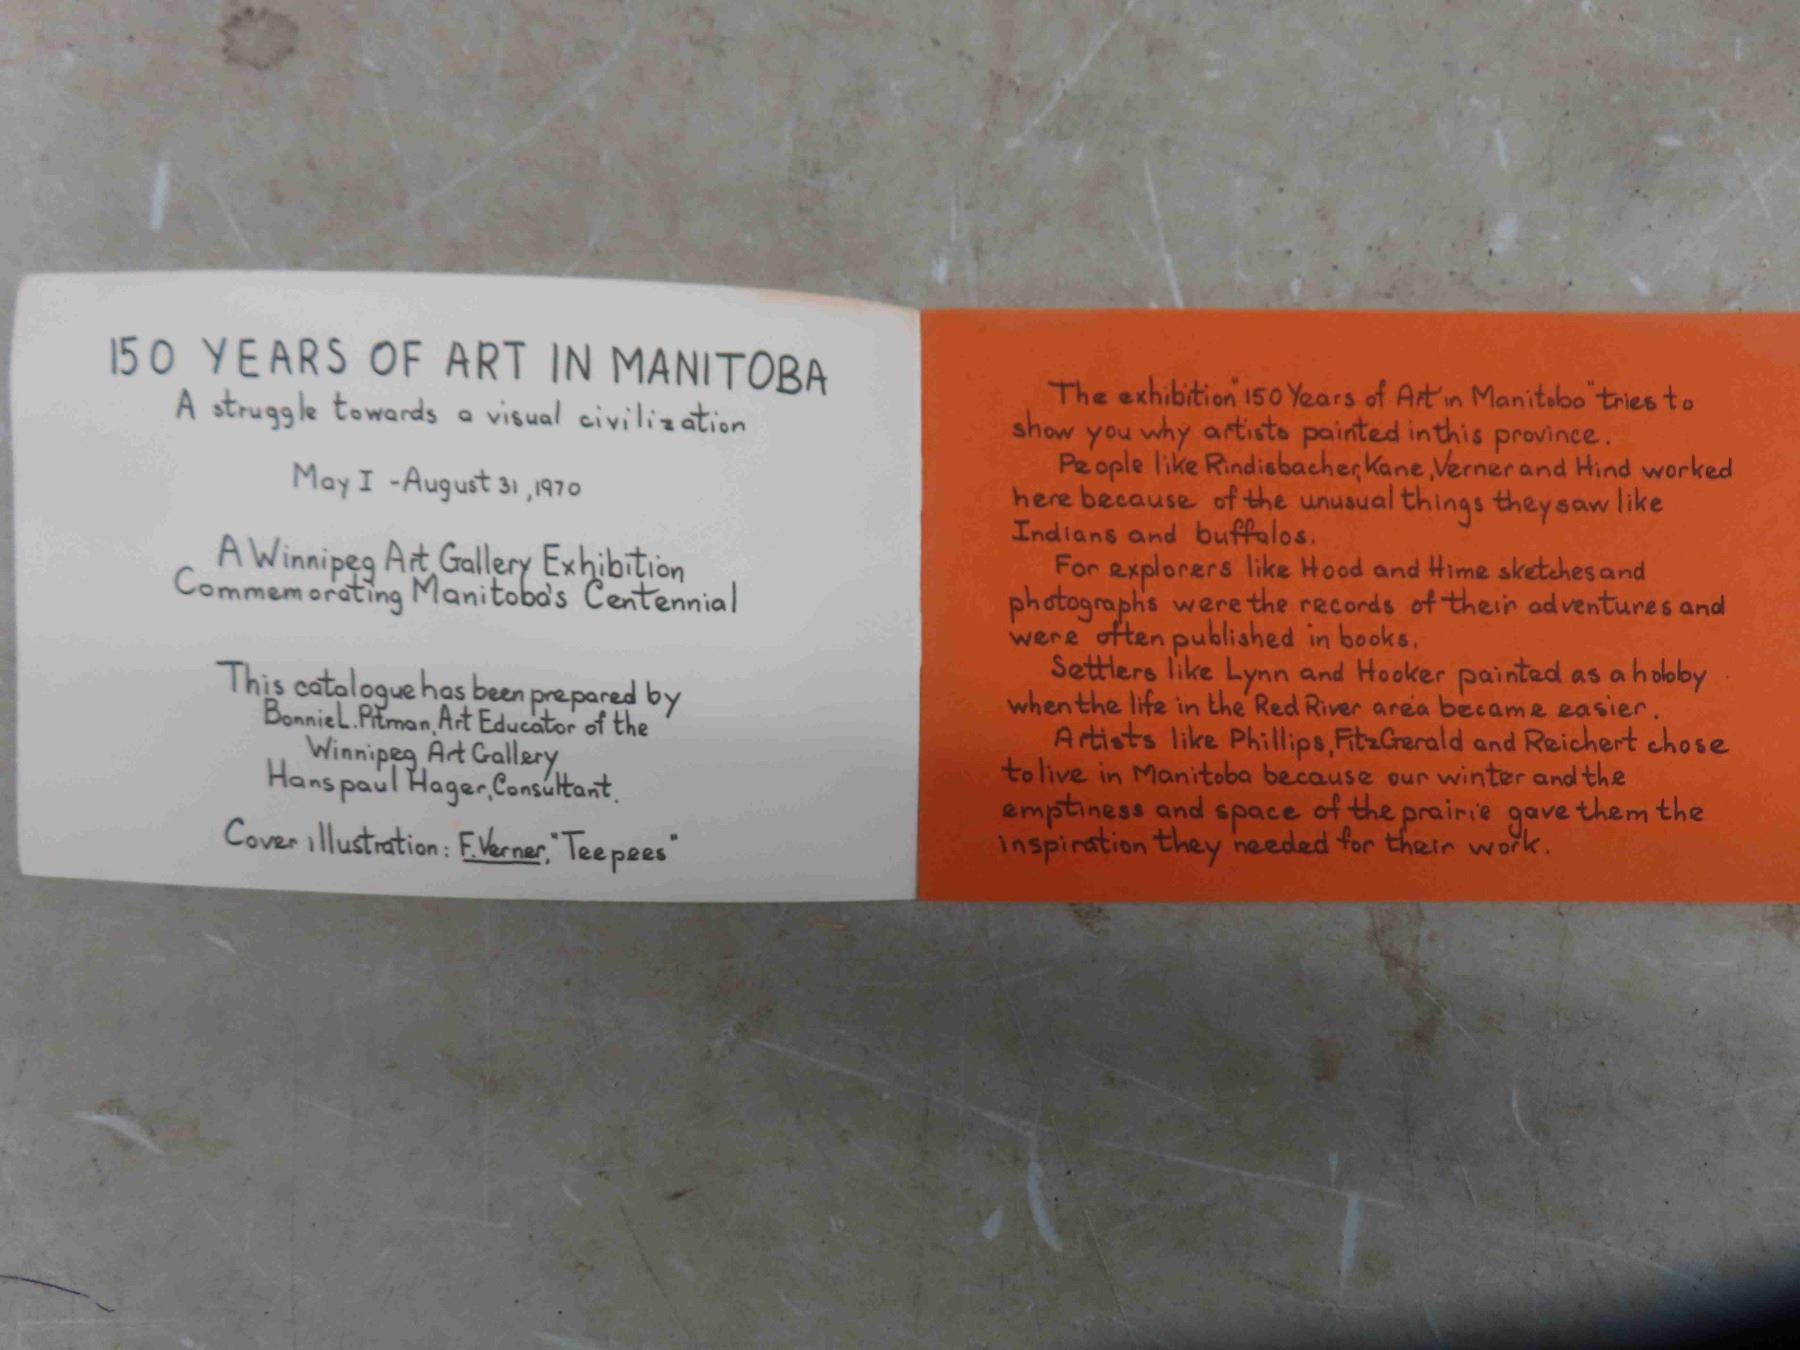 150 YEARS OF ART IN MANITOBA
A struggle towards a visual civilization
May I - August 31, 1970
A Winnipeg Art Gallery Exhibition
Commemorating Manitoba's Centennial
This catalogue has been prepared by
Bonnie L. Pitman, Art Educator of the
Winnipeg Art Gallery
Hanspaul Hager, Consultant.
Cover illustration: F. Verner, "Teepees"
The exhibition "150 Years of Art in Manitoba" tries to
show you why artists painted in this province.
People like Rindisbacher, Kane, Verner and Hind worked
here because of the unusual things they saw like
Indians and buffalos.
For explorers like Hood and Hime sketches and
photographs were the records of their adventures and
were often published in books.
Settlers like Lynn and Hooker painted as a hobby
when the life in the Red River area became easier.
Artists like Phillips, FitzGerald and Reichert chose
to live in Manitoba because our winter and the
emptiness and space of the prairie gave them the
inspiration they needed for their work.